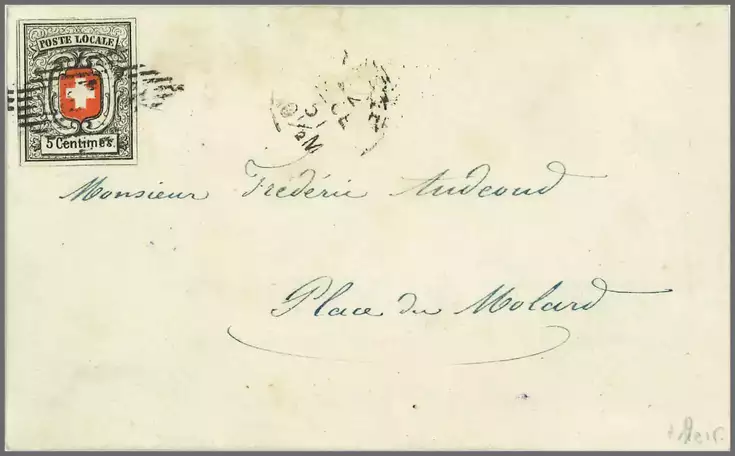 POSTE LOCALE
5 Centimes.
Monsieur Frédéric Audeoud
Place du Molard